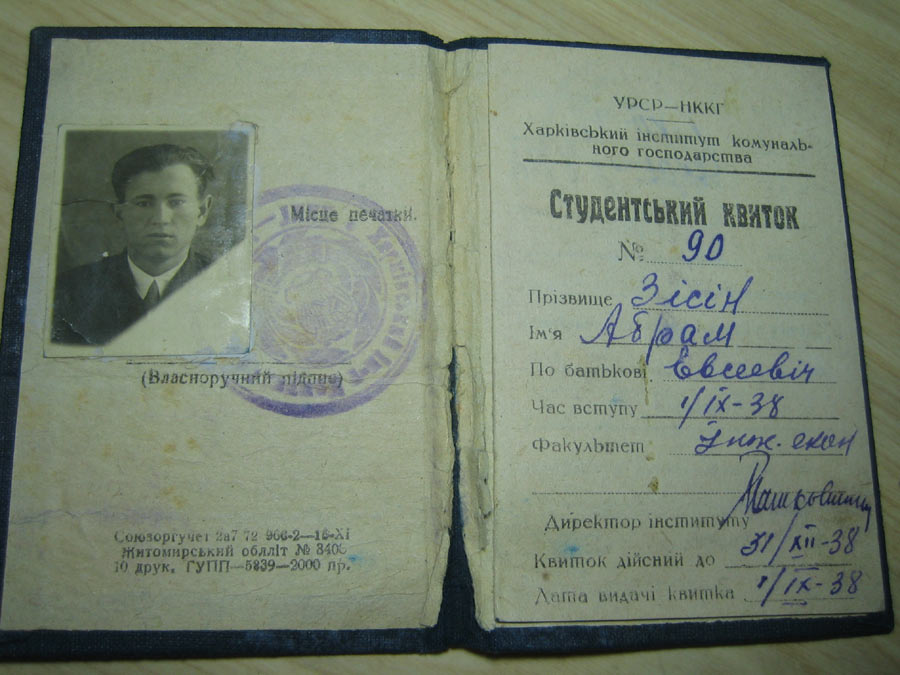 Місце печатки.
(Власноручний підпис)
Союзоргучет 2а7 72 966—2—16—XI
Житомирський обліт № 3406
10 друк. ГУПП—5839—2000 пр.
УРСР—НККГ
Харківський інститут комуналь-
ного господарства
Студентський квиток
№ 90
Прізвище Зісін
Ім'я Абрам
По батькові Евсеевіч
Час вступу 1/IX-38
Факультет Інж. екон
Директор інституту
Квиток дійсний до 31/XII-38
Дата видачі квитка 1/IX-38